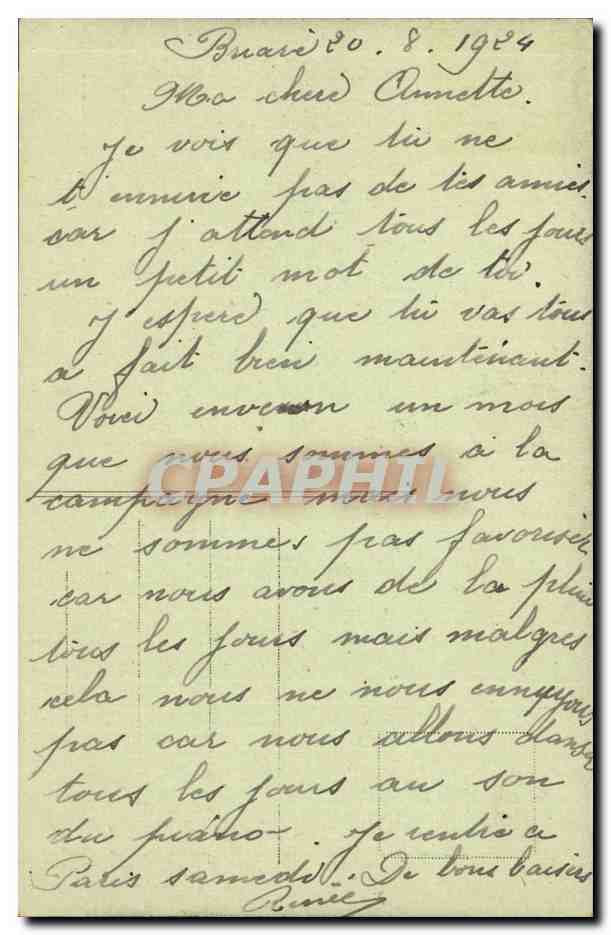 Briare 20. 8. 1924
Ma chere Annette.
Je vois que tu ne
t'ennuie pas de tes amies
car j'attend tous les jours
un petit mot de toi.
J'espere que tu vas tous
a fait bien maintenant.
Voici environ un mois
que nous sommes a la
CPAPHIL
campagne mais nous
ne sommes pas favoriser
car nous avons de la pluie
tous les jours mais malgres
cela nous ne nous ennuyons
pas car nous allons danser
tous les jours au son
du piano. Je rentre a
Paris samedi. De bons baisers
Renée